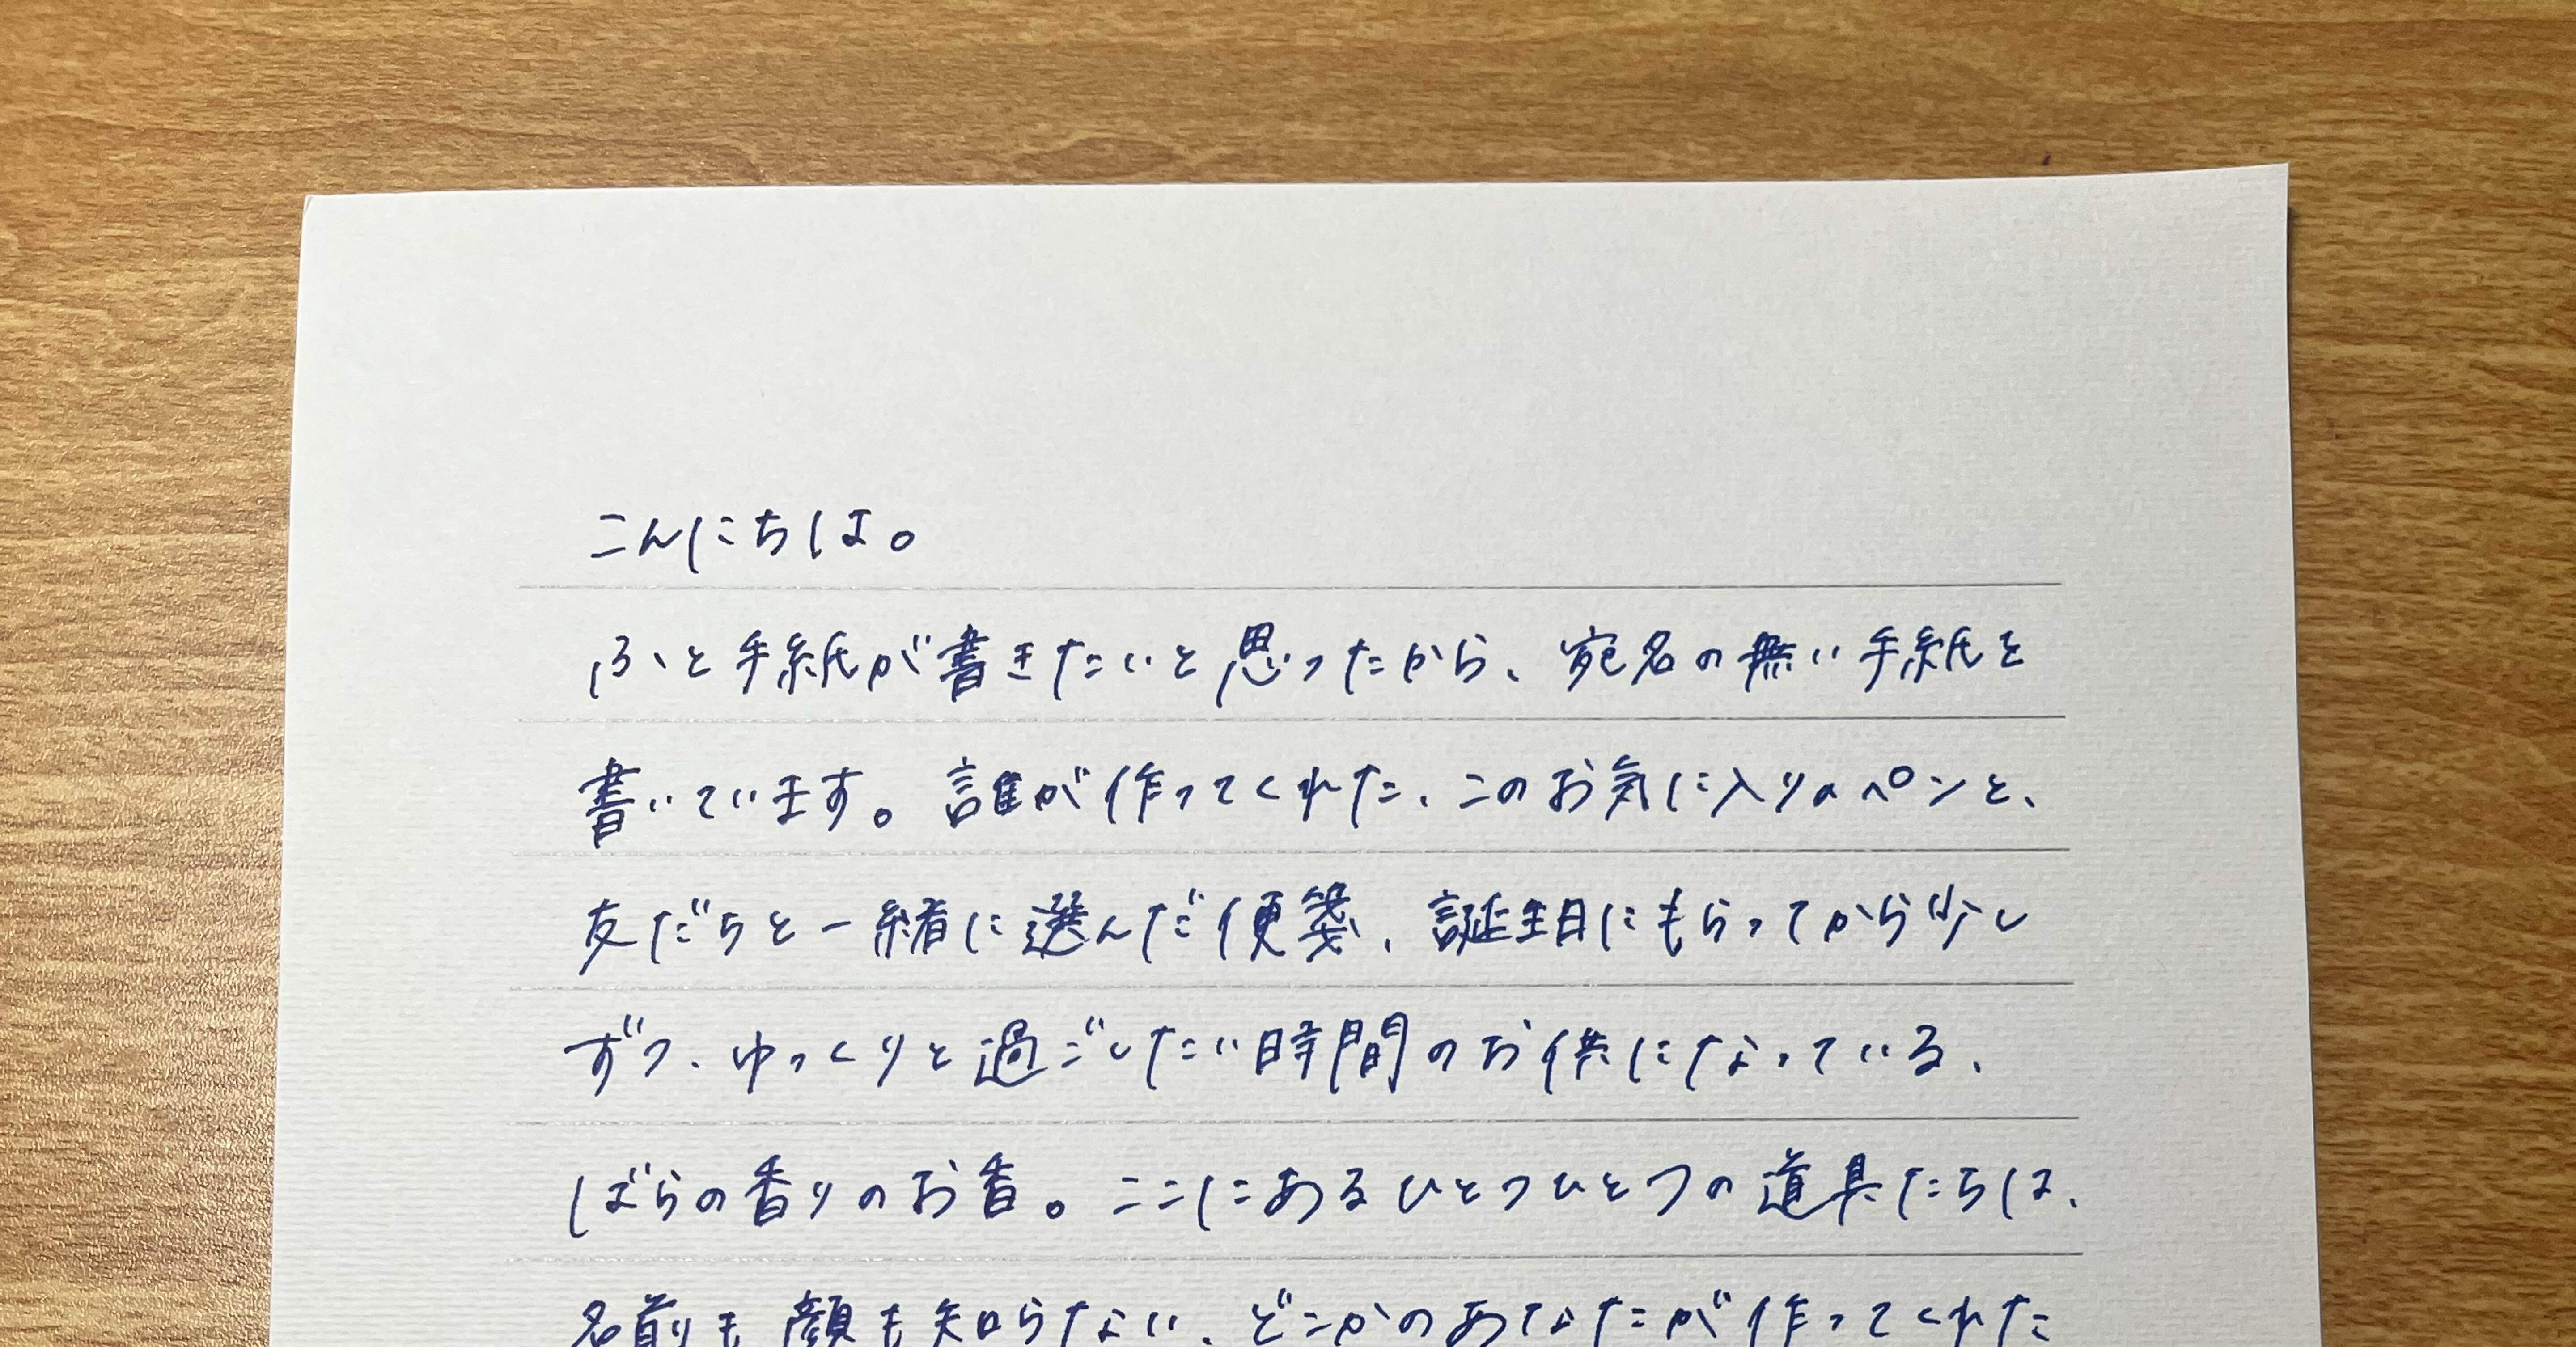 こんにちは。
ふと手紙が書きたいと思ったから、宛名の無い手紙を
書いています。誰が作ってくれた、このお気に入りのペンと、
友だちと一緒に選んだ便箋、誕生日にもらってから少し
ずつ、ゆっくりと過ごしたい時間のお供になっている、
ばらの香りのお香。ここにあるひとつひとつの道具たちは、
名前も顔も知らない、どこかのあなたが作ってくれた